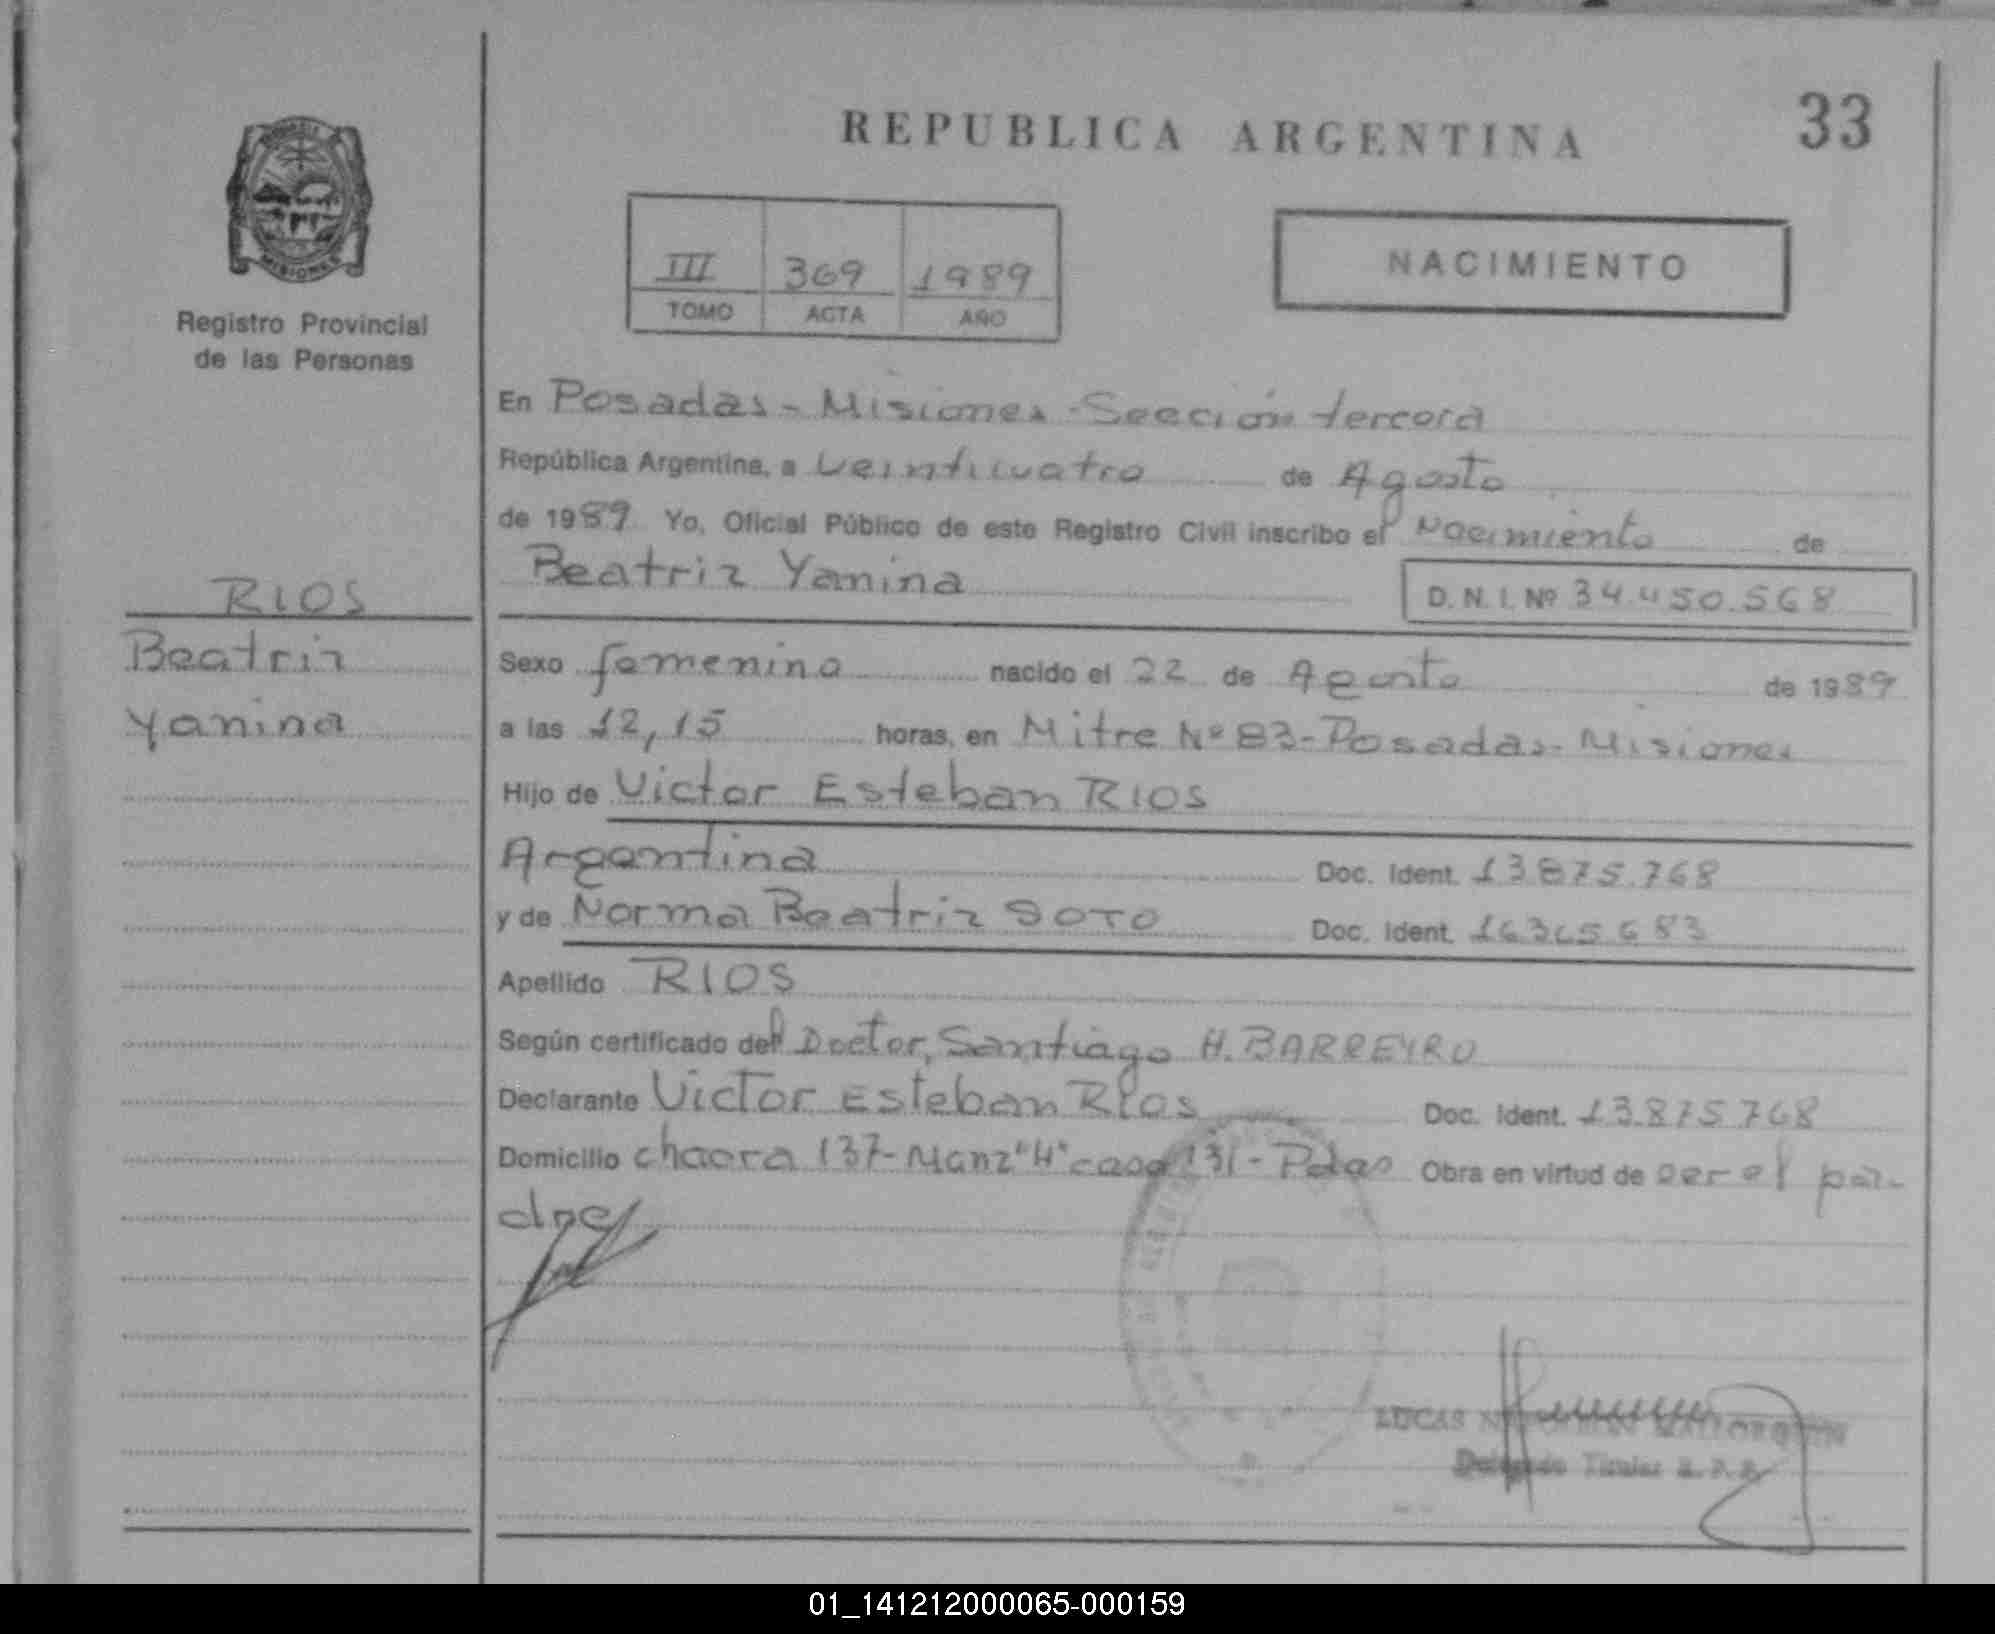 REPUBLICA ARGENTINA
33
MISIONES
Registro Provincial
de las Personas
III 369 1989
TOMO ACTA AÑO
NACIMIENTO
En Posadas - Misiones - Sección tercera
República Argentina, a veinticuatro de Agosto
de 1989 Yo, Oficial Público de este Registro Civil inscribo el Nacimiento de
Beatriz Yanina
D. N. I. Nº 34.450.568
RIOS
Beatriz
Yanina
Sexo femenino nacido el 22 de Agosto de 1989
a las 12,15 horas, en Mitre Nº 83 - Posadas - Misiones
Hijo de Victor Esteban RIOS
Argentina Doc. Ident. 13875.768
y de Norma Beatriz SOTO Doc. Ident. 16365683
Apellido RIOS
Según certificado del Doctor, Santiago H. BARREYRO
Declarante Victor Esteban Rios Doc. Ident. 13.875.768
Domicilio chacra 137- Manz "H" casa 131 - Pdas Obra en virtud de ser el pa-
dre
LUCAS
Delegado Titular R. P. P.
01_141212000065-000159